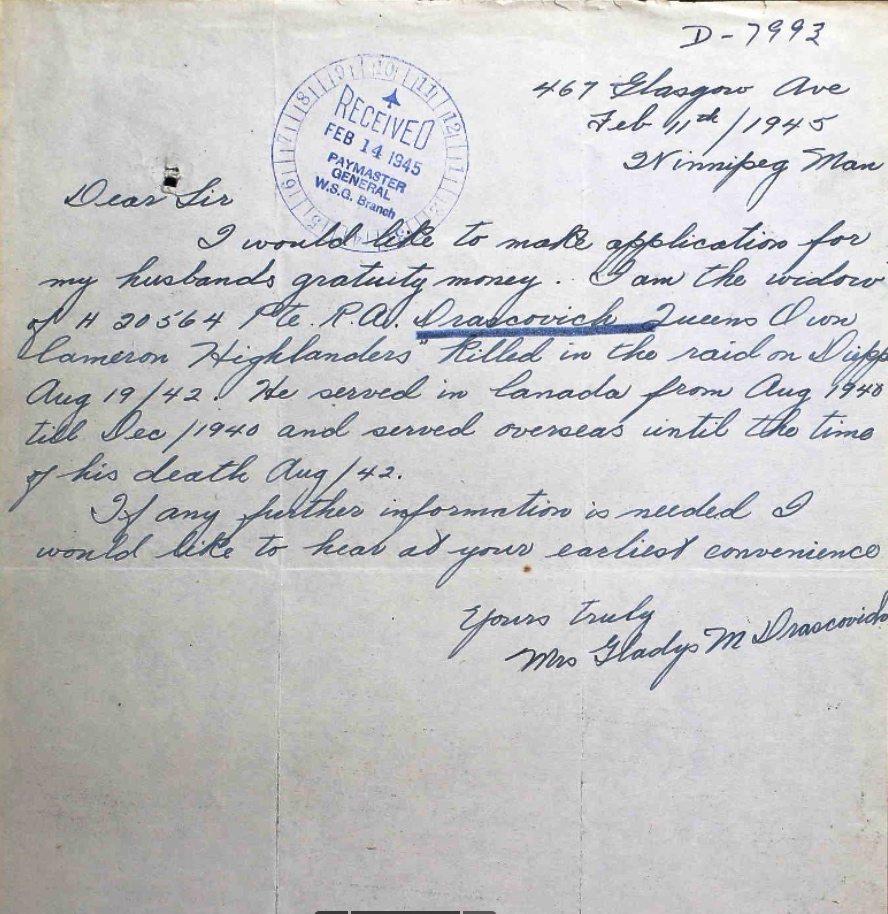 D-7993
467 Glasgow Ave
Feb 11th/1945
Winnipeg Man
9 10 11 12 1 2 3 4 5 6 7 8
RECEIVED
FEB 14 1945
PAYMASTER
GENERAL
W.S.G. Branch
Dear Sir
I would like to make application for
my husbands gratuity money. I am the widow
of H 20564 Pte. R.A. Drascovich Queens Own
Cameron Highlanders" Killed in the raid on Diepp
Aug 19/42. He served in Canada from Aug 1940
till Dec/1940 and served overseas until the time
of his death Aug/42.
If any further information is needed I
would like to hear at your earliest convenience
Yours truly
Mrs Gladys M Drascovich